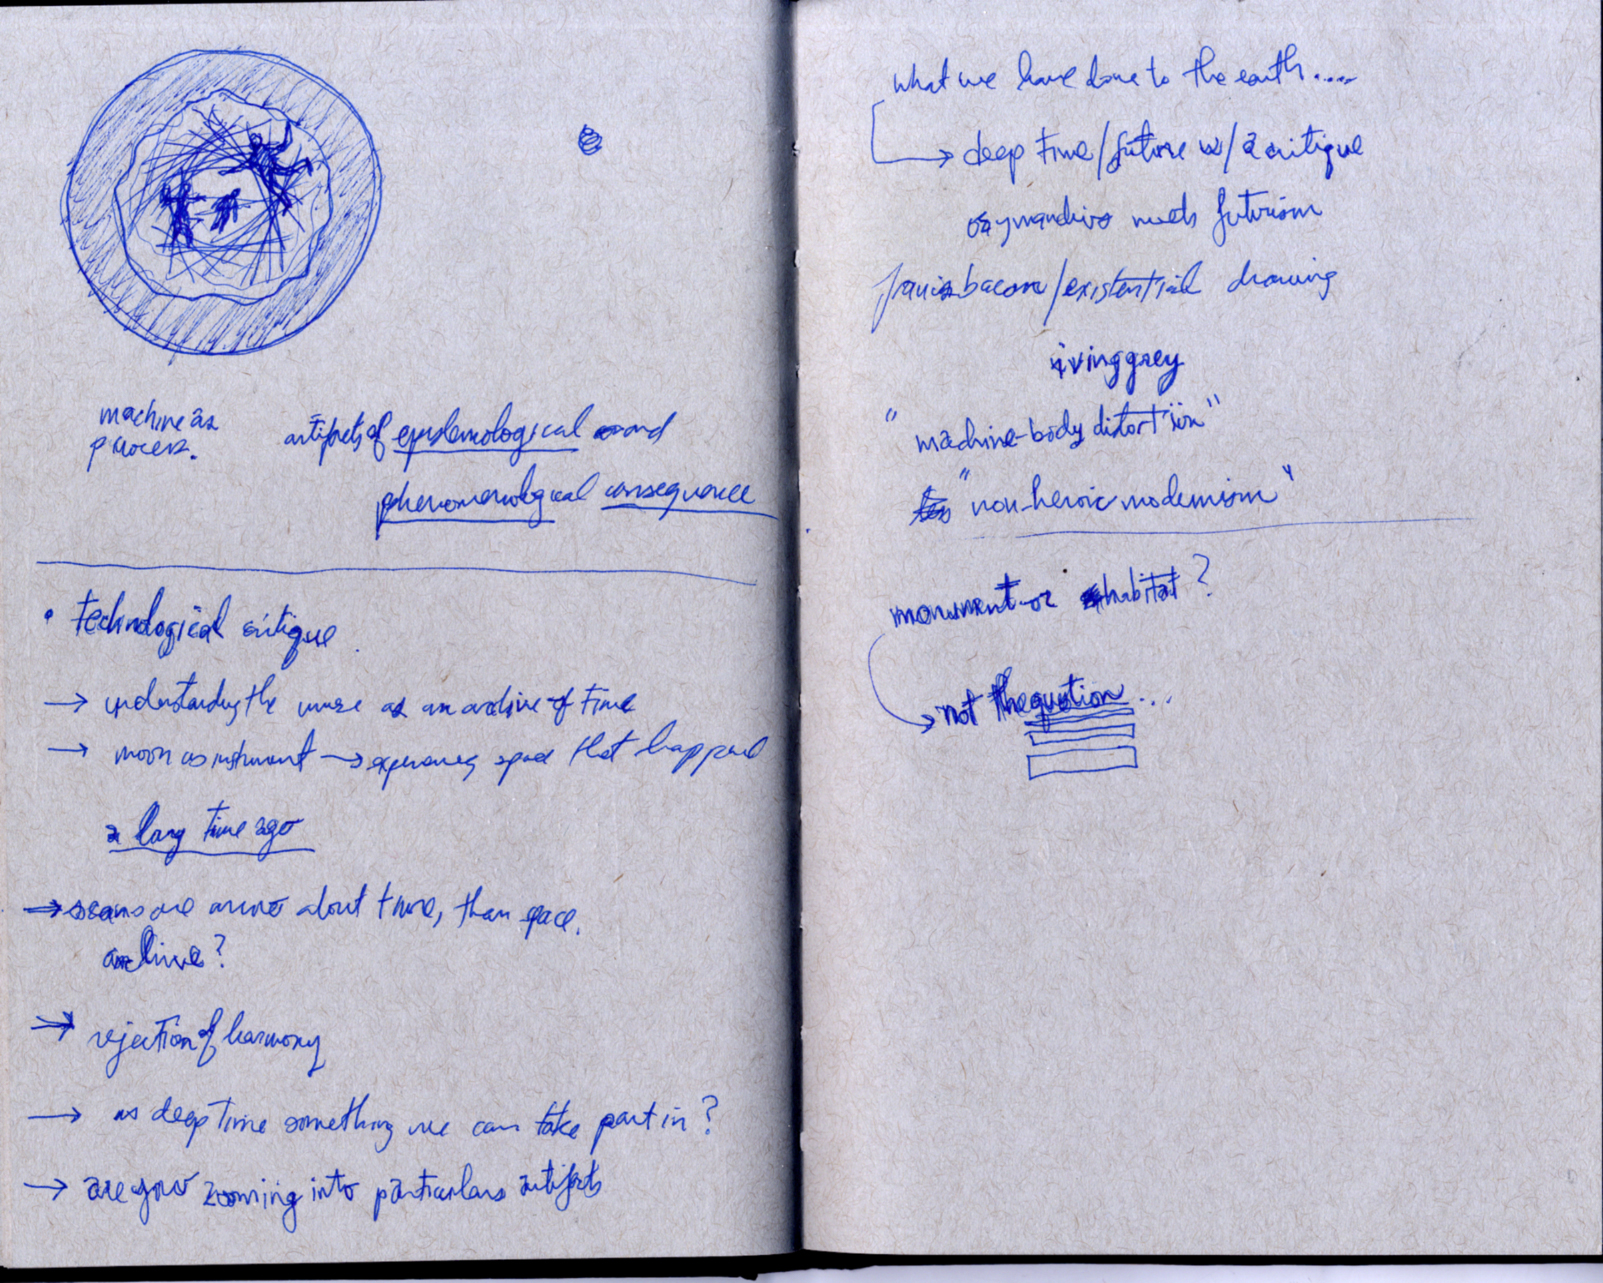 machine as
process.
artifacts of epistemological and
phenomenological consequence
• technological critique
→ understanding the universe as an archive of time
→ moon as instrument → space that happened
a long time ago
→ are more about time, than space.
archive?
→ rejection of harmony
→ as deep time something we can take part in?
→ are you zooming into particular artifacts
what we have done to the earth.....
→ deep time/future w/ a critique
ozymandias meets futurism
francis bacon/existential drawing
irving grey
"machine-body distortion"
"non-heroic modernism"
monument or habitat?
→ not the question...